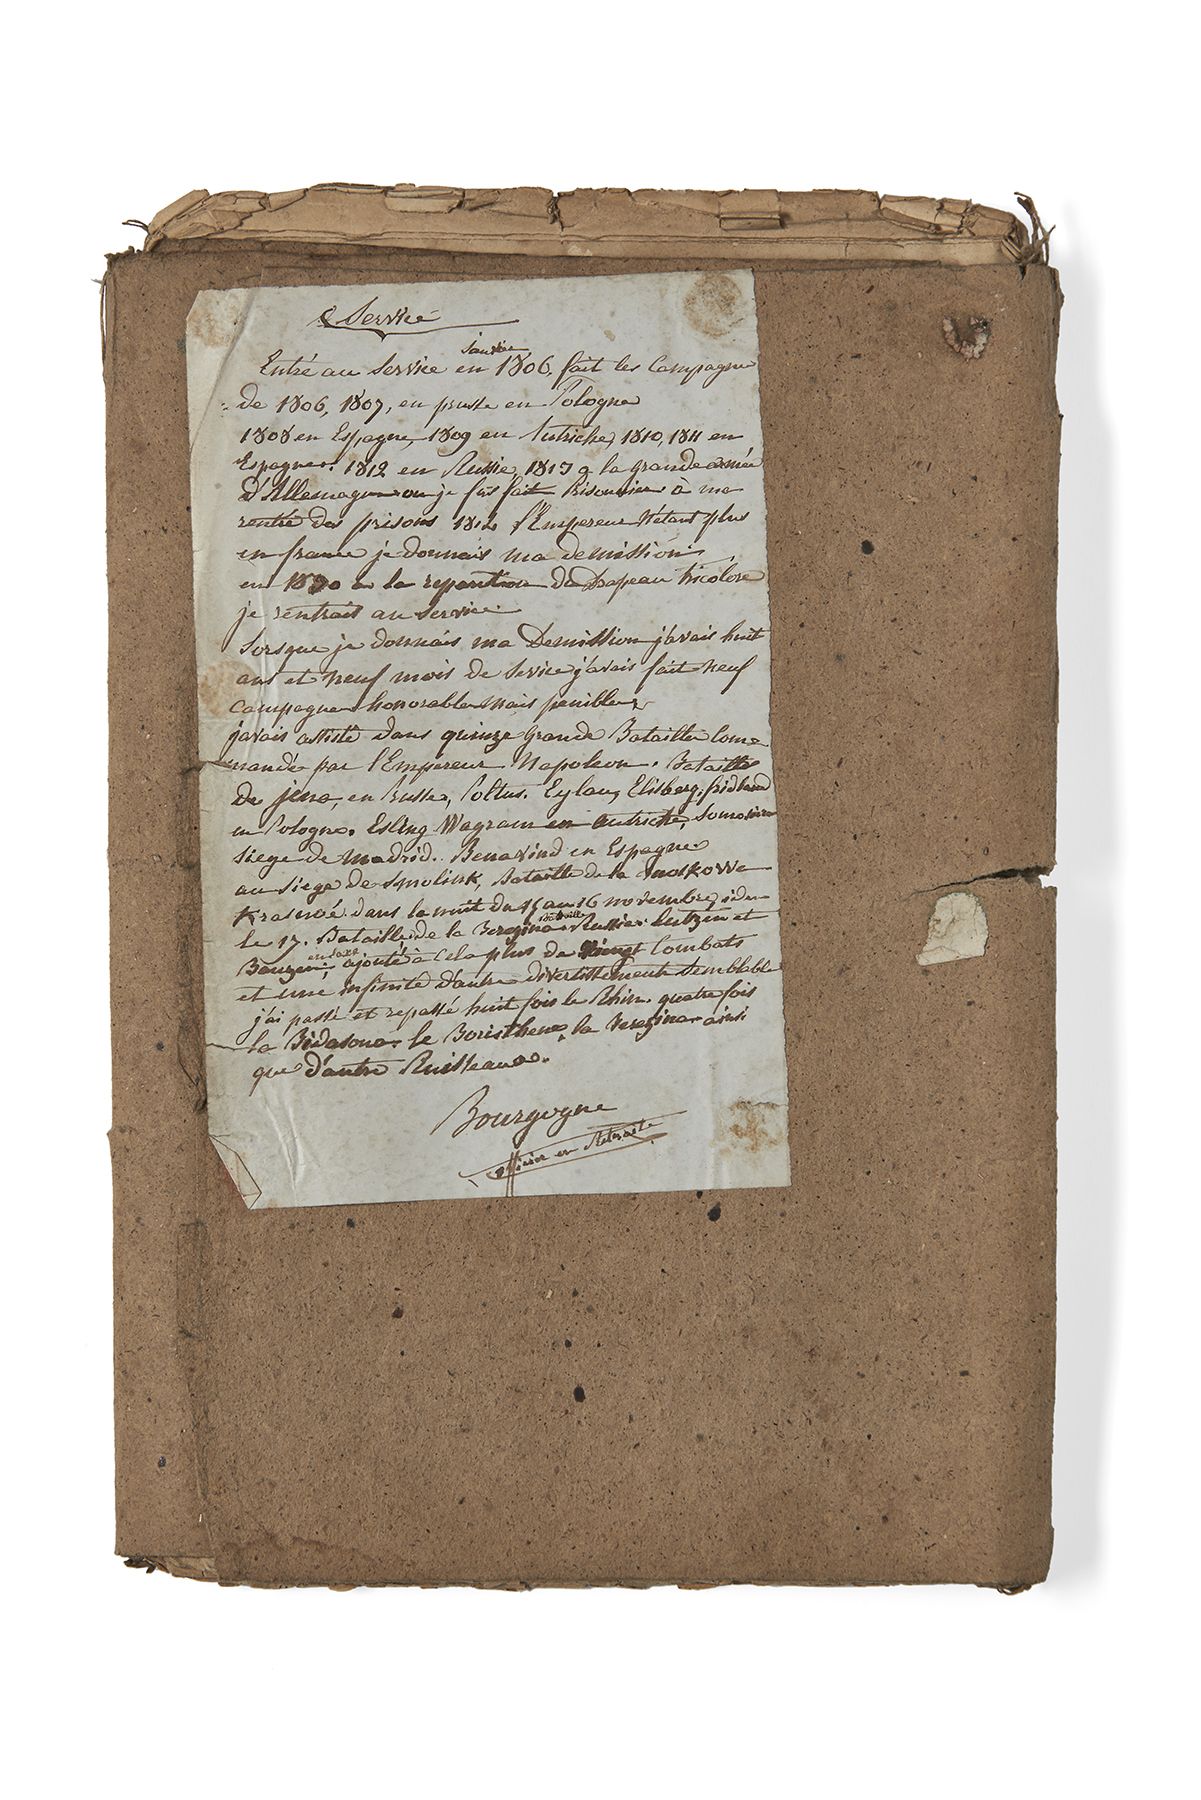 Service
janvier
Entré au Service en 1806, fait les Campagne
de 1806, 1807, en prusse en Pologne
1808 en Espagne, 1809 en Autriche, 1810, 1811 en
Espagne. 1812 en Russie, 1813 a la grande armée
d'Allemagne ou je fus fait Prisonnier. à ma
rentré des prisons 1814 l'Empereur N'étant plus
en france je donnais ma demission
en 1830 a la reparition du Drapeau tricolore
je rentrais au Service.
Lorsque je donnais ma Demission j'avais huit
ans et neuf mois de Service j'avais fait neuf
Campagne honorable mais penible,
javais assisté dans quinze Grande Bataille Com-
mandé par l'Empereur Napoleon. Bataille
de jena, en Prusse, Poltus. Eylau, Elisberg, fridland
en Pologne. Esling Wagram en Autriche,
Siege de Madrid. Benavind en Espagne
au siege de Smolinsk, Bataille de la Moskowa
Krasnoé dans la nuit du 15 au 16 novembre, idem
le 17. Bataille de la Berezina Russie. Lutzen et
Bataille
Bauzen, ajouté à Cela plus de vingt Combats
en saxe
et une infinité d'autre divertissement Semblable
j'ai passé et repassé huit fois le Rhin. quatre fois
la Bidasoua. le Boristhene, la Berezina ainsi
que d'autre Ruisseaux.
Bourgogne
officier en Retraite